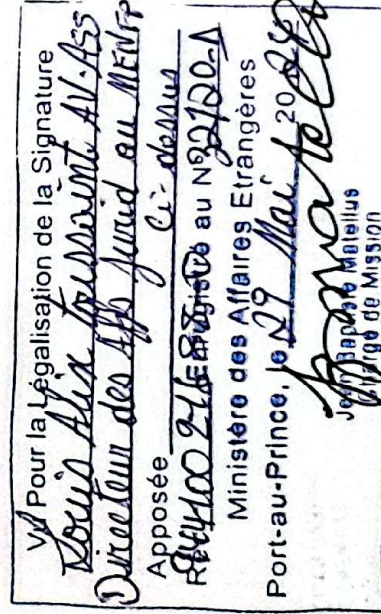 Vu Pour la Légalisation de la Signature
Louis Alix Toussaint AV. Ass
Directeur des Aff Jurid au MENFP
Apposée Ci-dessus
Enregistré au No
Ministère des Affaires Etrangères
Port-au-Prince, le 29 Mai 20
Matellus
Chargé de Mission